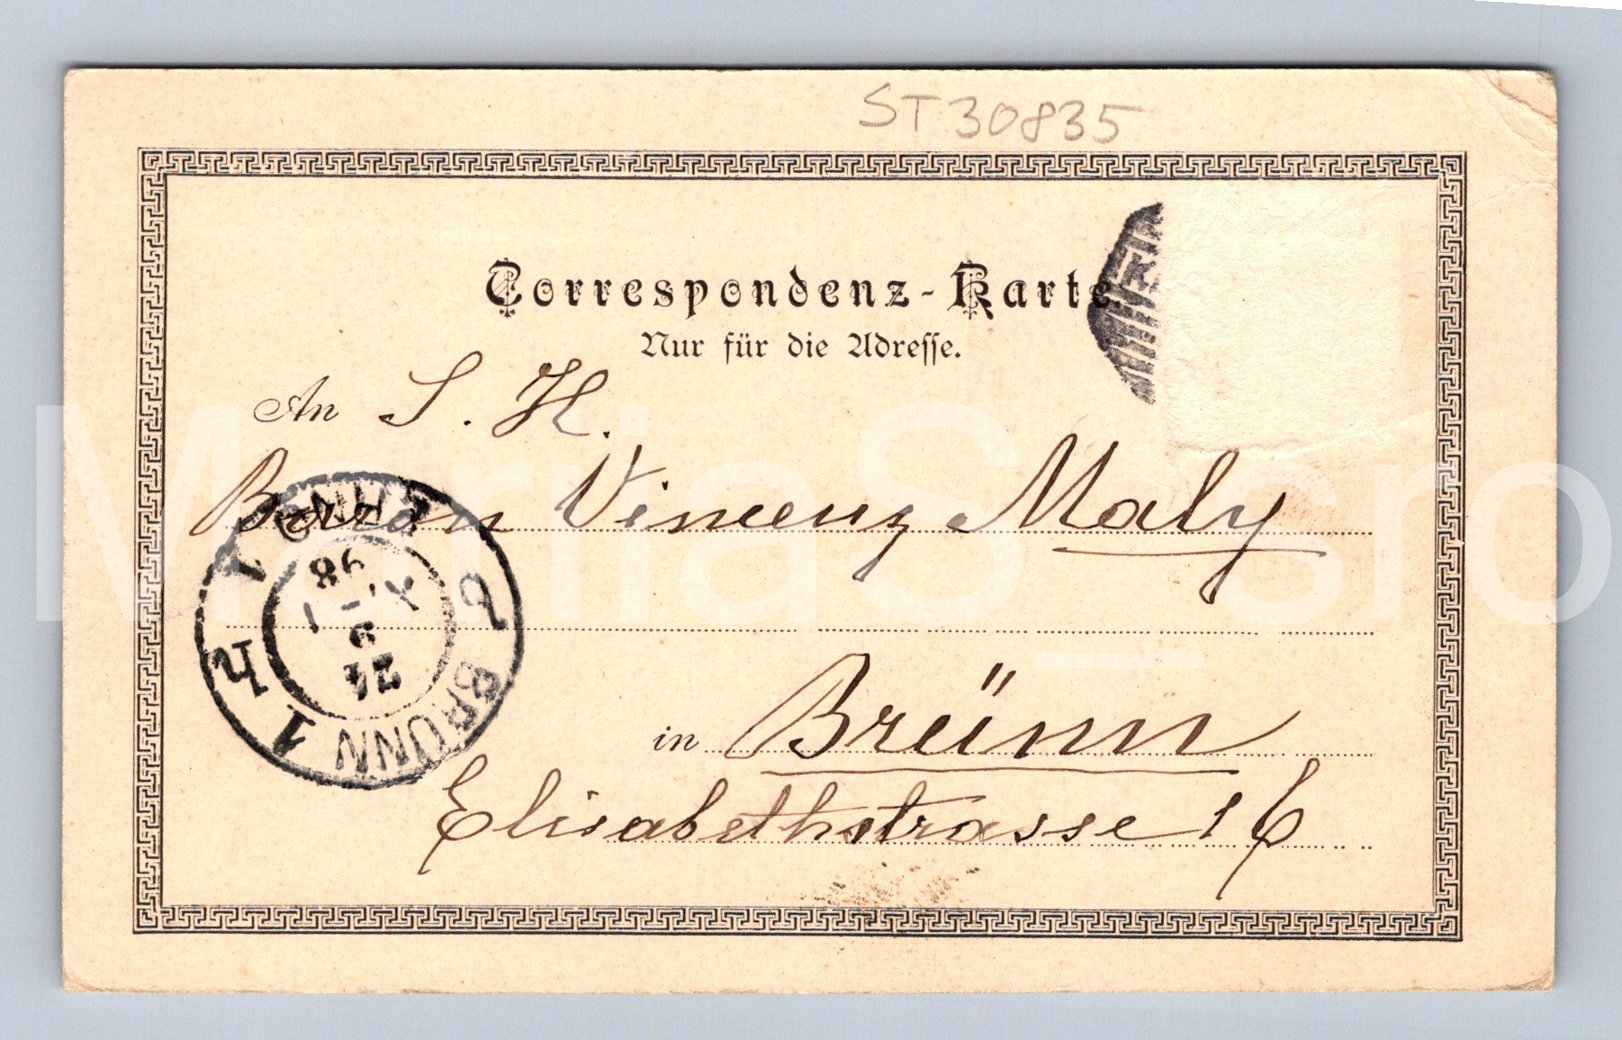 ST30835
Correspondenz-Karte.
Nur für die Adresse.
An S. H.
Baron Vincenz Maly
in Brünn
Elisabethstrasse 16
BRÜNN 1
24
9
98
BRNO